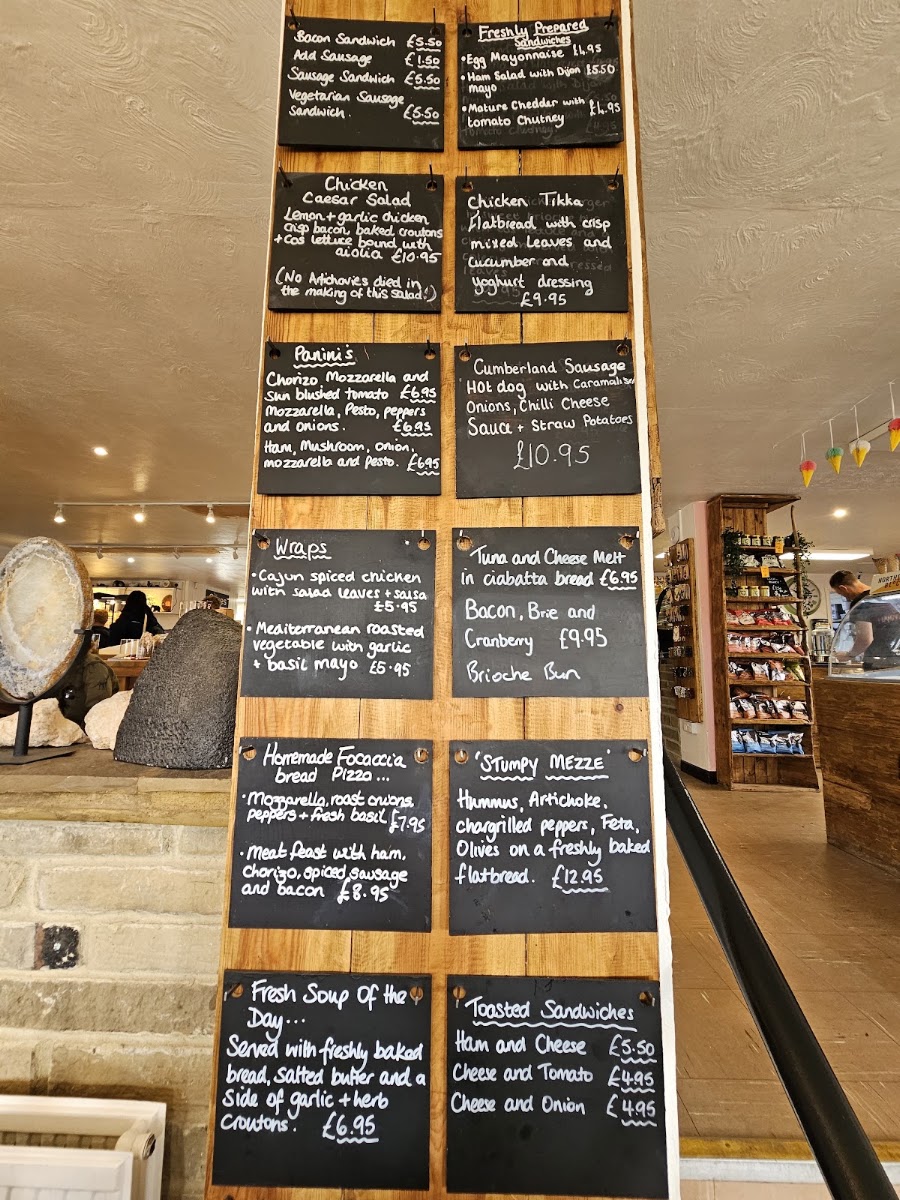 Bacon Sandwich £5.50
Add Sausage £1.50
Sausage Sandwich £5.50
Vegetarian Sausage
Sandwich. £5.50
Freshly Prepared
Sandwiches
•Egg Mayonnaise £4.95
•Ham Salad with Dijon £5.50
mayo
•Mature Cheddar with £4.95
tomato Chutney
Chicken
Caesar Salad
Lemon + garlic chicken
crisp bacon, baked croutons
+ cos lettuce bound with
aiolia £10.95
(No Artichovies died in
the making of this salad!)
Chicken Tikka
flatbread with crisp
mixed leaves and
cucumber and
yoghurt dressing
£9.95
Panini's
Chorizo, Mozzarella and
Sun blushed tomato £6.95
Mozzarella, Pesto, peppers
and onions. £6.95
Ham, Mushroom, onion,
mozzarella and pesto. £6.95
Cumberland Sausage
Hot dog with Caramalised
Onions, Chilli Cheese
Sauce + Straw Potatoes
£10.95
Wraps
•Cajun spiced chicken
with salad leaves + salsa
£5.95
•Mediterranean roasted
vegetable with garlic
+ basil mayo £5.95
Tuna and Cheese Melt
in ciabatta bread £6.95
Bacon, Brie and
Cranberry £9.95
Brioche Bun
Homemade Focaccia
bread Pizza...
•Mozzarella, roast onions,
peppers + fresh basil £7.95
•Meat feast with ham,
chorizo, spiced sausage
and bacon £8.95
'STUMPY MEZZE'
Hummus, Artichoke,
chargrilled peppers, Feta,
Olives on a freshly baked
flatbread. £12.95
Fresh Soup Of the
Day...
Served with freshly baked
bread, salted butter and a
side of garlic + herb
croutons. £6.95
Toasted Sandwiches
Ham and Cheese £5.50
Cheese and Tomato £4.95
Cheese and Onion £4.95